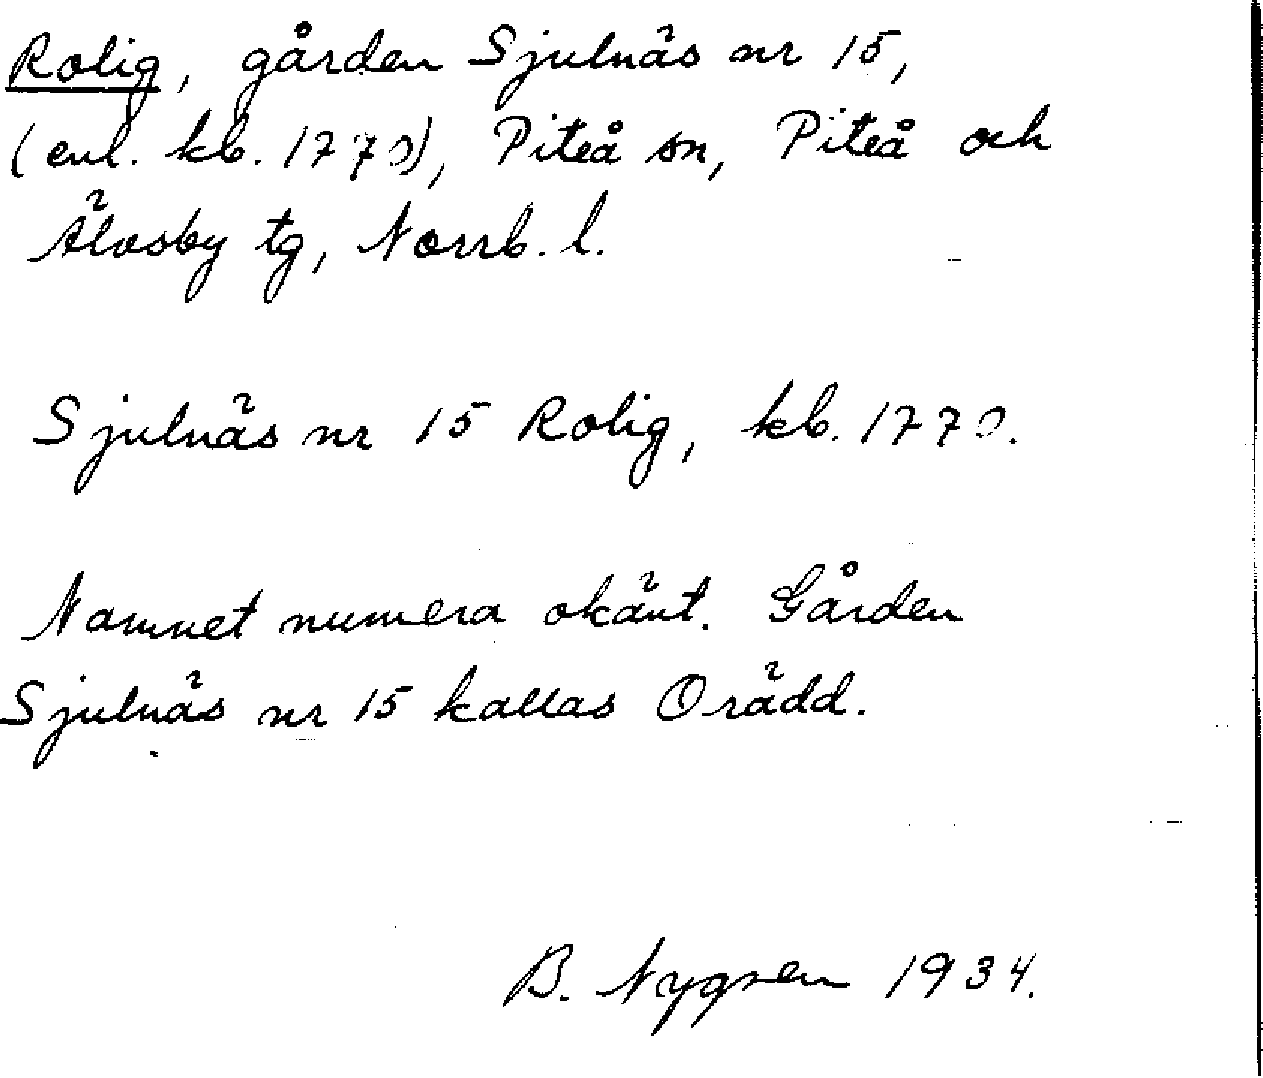 Rolig, gården Sjulnäs nr 15,
(enl. kb. 1770), Piteå sn, Piteå och
Älvsby tg, Norrb. l.
Sjulnäs nr 15 Rolig, kb. 1770.
Namnet numera okänt. Gården
Sjulnäs nr 15 kallas Orädd.
B. Nygren 1934.